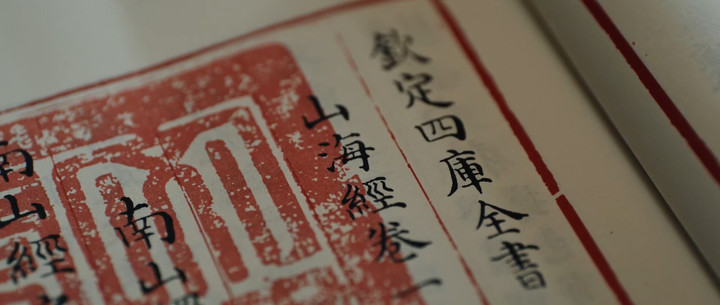 欽定四庫全書
山海經卷一
南山
南山經